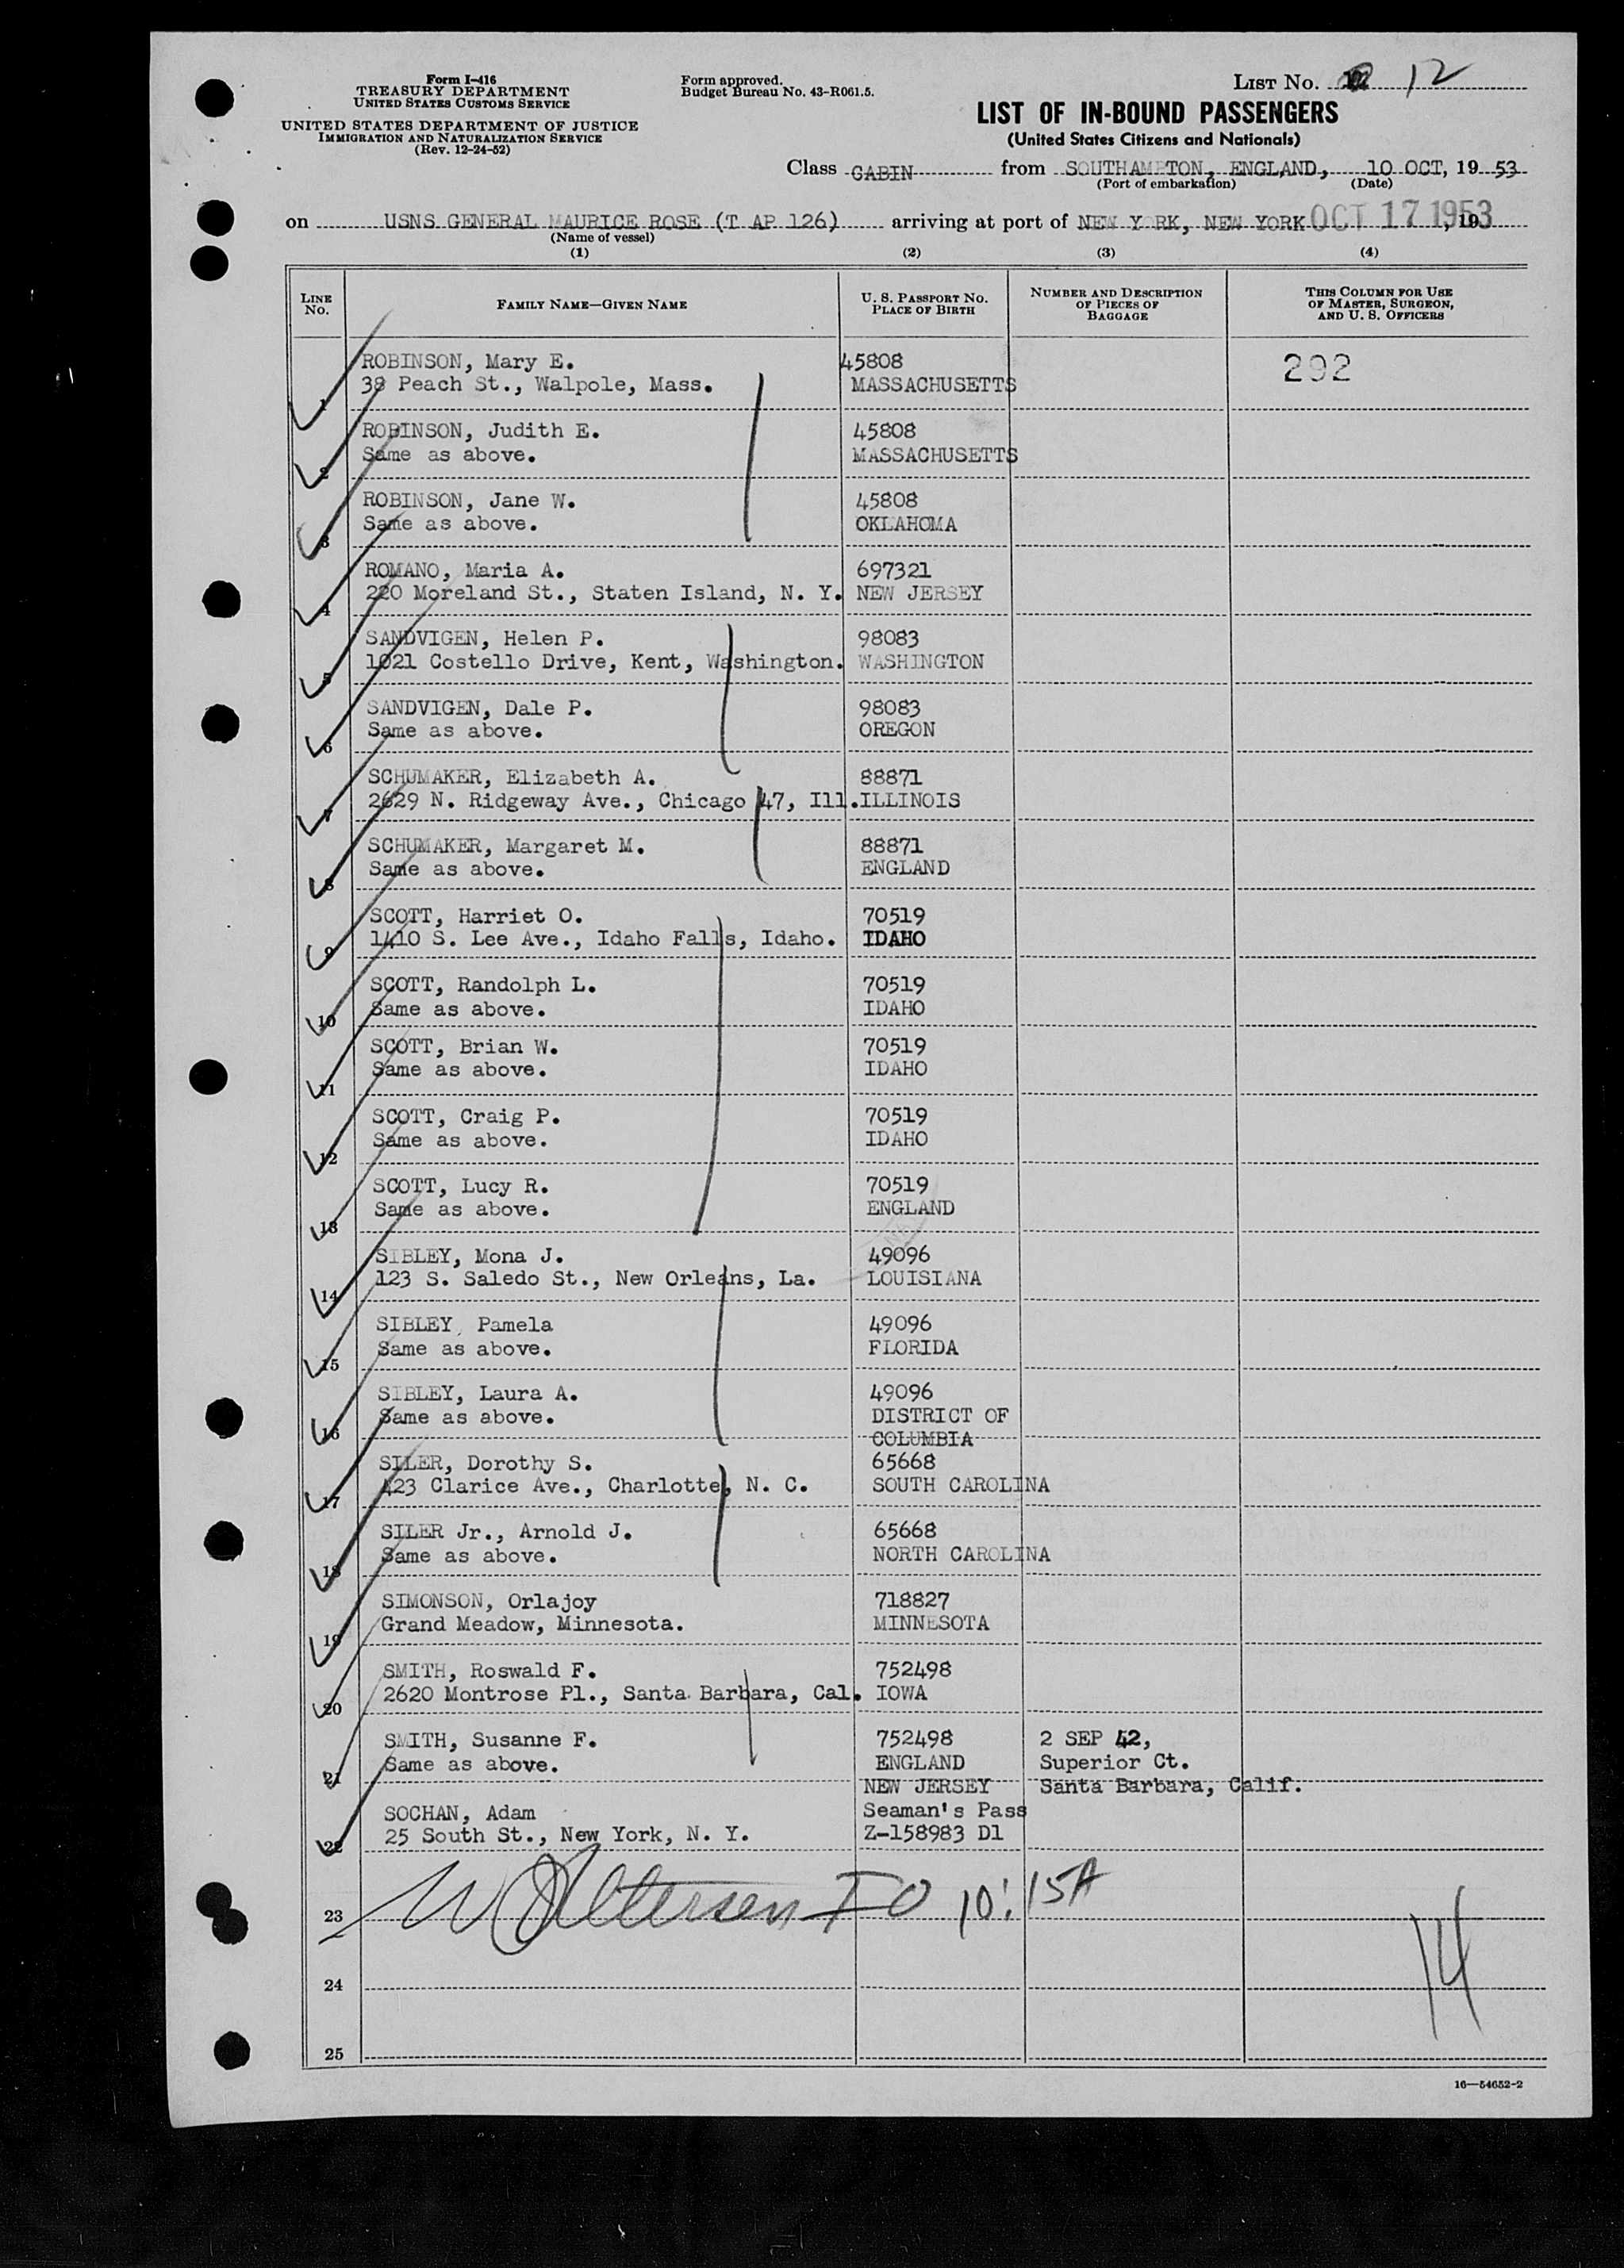 Form I-416
TREASURY DEPARTMENT
UNITED STATES CUSTOMS SERVICE
UNITED STATES DEPARTMENT OF JUSTICE
IMMIGRATION AND NATURALIZATION SERVICE
(Rev. 12-24-52)
Form approved.
Budget Bureau No. 43-R061.5.
LIST NO. 12
LIST OF IN-BOUND PASSENGERS
(United States Citizens and Nationals)
Class CABIN from SOUTHAMPTON, ENGLAND, 10 OCT, 19 53
(Port of embarkation) (Date)
on USNS GENERAL MAURICE ROSE (T AP 126) arriving at port of NEW YORK, NEW YORK OCT 17 1953, 19
(Name of vessel)
(1) (2) (3) (4)
LINE NO. FAMILY NAME—GIVEN NAME U. S. PASSPORT NO. PLACE OF BIRTH NUMBER AND DESCRIPTION OF PIECES OF BAGGAGE THIS COLUMN FOR USE OF MASTER, SURGEON, AND U. S. OFFICERS
ROBINSON, Mary E. 45808 292
38 Peach St., Walpole, Mass. MASSACHUSETTS
1
ROBINSON, Judith E. 45808
Same as above. MASSACHUSETTS
2
ROBINSON, Jane W. 45808
Same as above. OKLAHOMA
3
ROMANO, Maria A. 697321
220 Moreland St., Staten Island, N. Y. NEW JERSEY
4
SANDVIGEN, Helen P. 98083
1021 Costello Drive, Kent, Washington. WASHINGTON
5
SANDVIGEN, Dale P. 98083
Same as above. OREGON
6
SCHUMAKER, Elizabeth A. 88871
2629 N. Ridgeway Ave., Chicago 47, Ill. ILLINOIS
7
SCHUMAKER, Margaret M. 88871
Same as above. ENGLAND
8
SCOTT, Harriet O. 70519
1410 S. Lee Ave., Idaho Falls, Idaho. IDAHO
9
SCOTT, Randolph L. 70519
Same as above. IDAHO
10
SCOTT, Brian W. 70519
Same as above. IDAHO
11
SCOTT, Craig P. 70519
Same as above. IDAHO
12
SCOTT, Lucy R. 70519
Same as above. ENGLAND
13
SIBLEY, Mona J. 49096
123 S. Saledo St., New Orleans, La. LOUISIANA
14
SIBLEY, Pamela 49096
Same as above. FLORIDA
15
SIBLEY, Laura A. 49096
Same as above. DISTRICT OF
16 COLUMBIA
SILER, Dorothy S. 65668
423 Clarice Ave., Charlotte, N. C. SOUTH CAROLINA
17
SILER Jr., Arnold J. 65668
Same as above. NORTH CAROLINA
18
SIMONSON, Orlajoy 718827
Grand Meadow, Minnesota. MINNESOTA
19
SMITH, Roswald F. 752498
2620 Montrose Pl., Santa Barbara, Cal. IOWA
20
SMITH, Susanne F. 752498 2 SEP 42,
Same as above. ENGLAND Superior Ct.
21 NEW JERSEY Santa Barbara, Calif.
SOCHAN, Adam Seaman's Pass
25 South St., New York, N. Y. Z-158983 D1
22
IO 10:15A
23
14
24
25
16—54652-2